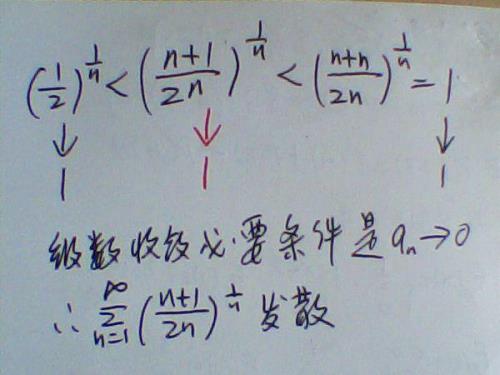 (1/2)^{1/n} < ((n+1)/2n)^{1/n} < ((n+n)/2n)^{1/n} = 1
↓ ↓ ↓
1 1 1
级数收敛必要条件是 aₙ→0
∴ ∑_{n=1}^{∞} ((n+1)/2n)^{1/n} 发散